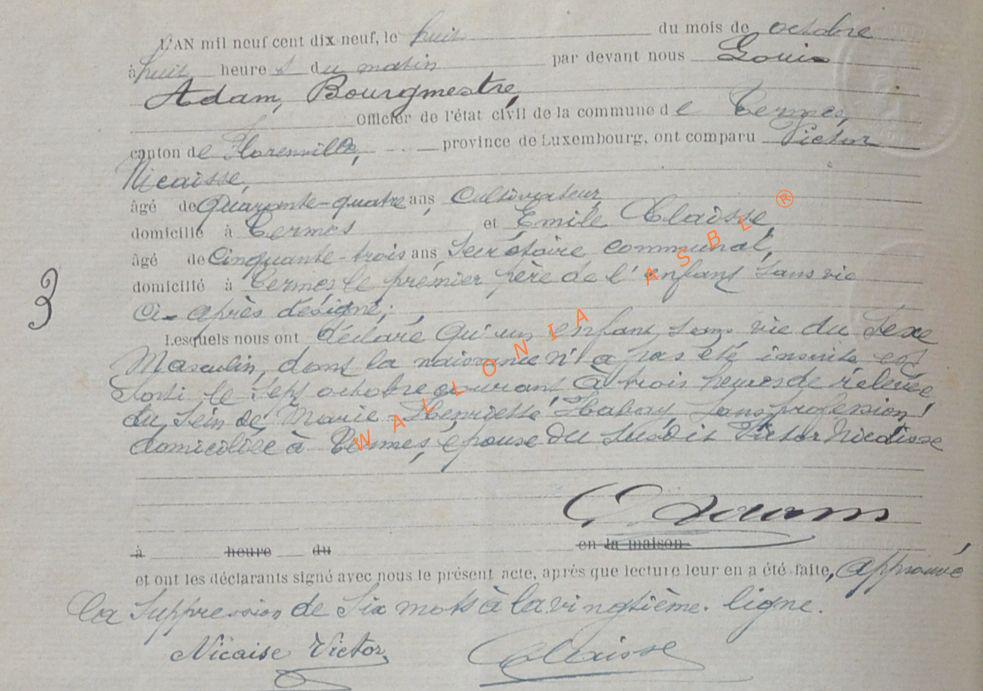 L'AN mil neuf cent dix neuf, le huit du mois de octobre
à huit heures du matin par devant nous Louis
Adam, Bourgmestre,
Officier de l'état civil de la commune de Termes,
canton de Florenville, province de Luxembourg, ont comparu Victor
Nicaisse,
âgé de quarante-quatre ans, Cultivateur
domicilié à Termes et Emile Claisse,
âgé de Cinquante-trois ans, Secrétaire communal,
domicilié à Termes le premier père de l'enfant sans vie
ci-après désigné;
3
Lesquels nous ont déclaré qu'un enfant sans vie du sexe
Masculin, dont la naissance n'a pas été inscrite est
sorti le sept octobre courant à trois heures de relevée
du sein de Marie-Henriette Habay sans profession,
domiciliée à Termes, épouse du susdit Victor Nicaisse
WALLONIA ASBL ®
L. Adam
à heure du en la maison
et ont les déclarants signé avec nous le présent acte, après que lecture leur en a été faite, approuvé
la suppression de six mots à la vingtième ligne.
Nicaise Victor, Claisse